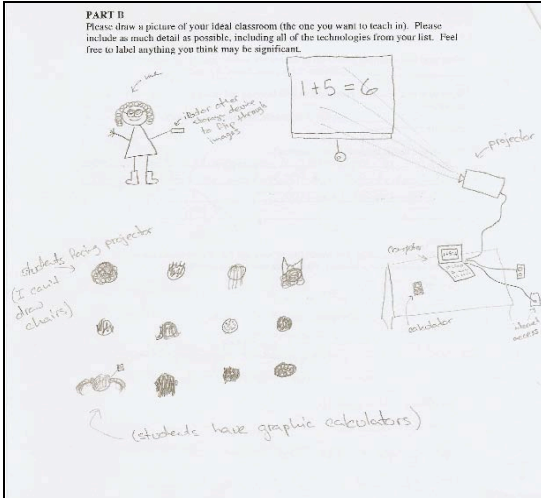 PART B
Please draw a picture of your ideal classroom (the one you want to teach in). Please
include as much detail as possible, including all of the technologies from your list. Feel
free to label anything you think may be significant.
me
other
storage device
to flip through
images
1+5=6
projector
students facing projector
(I could
draw
chairs)
computer
calculator
internet
access
(students have graphic calculators)